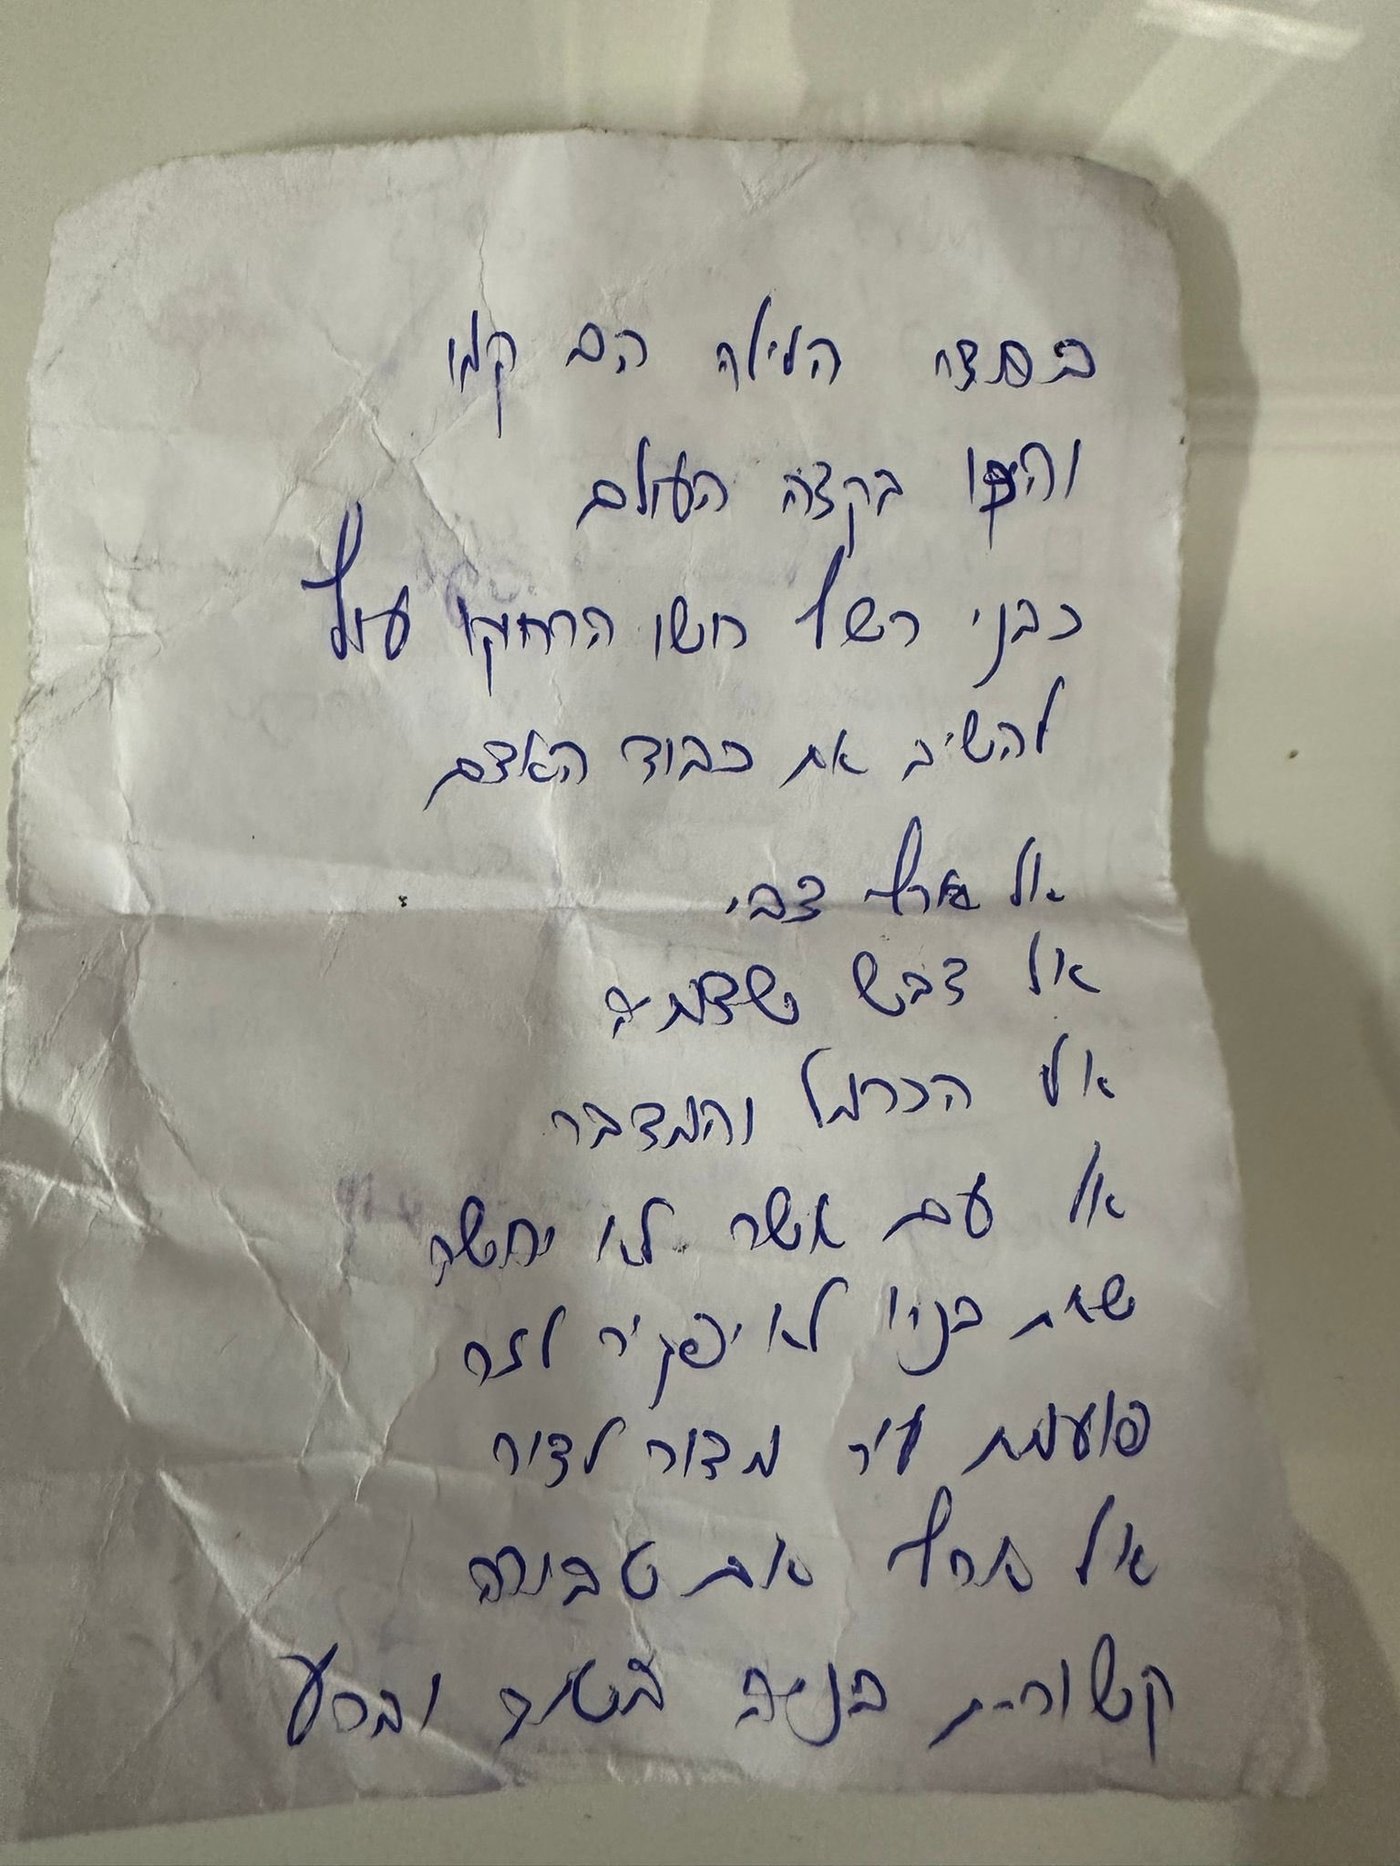 בסתר הלילה הם קמו
והיכו בקצה העולם
כבני רשף חשו הרחיקו עוף
להשיב את כבוד האדם
אל ארץ צבי
אל דבש שדמתיה
אל הכרמל והמדבר
אל עם אשר לא יחשה
שאת בניו לא יפקיר לזר
פועמת עיר מדור לדור
אל ארץ אם טבורה
קשורים בניה בטוב וברע